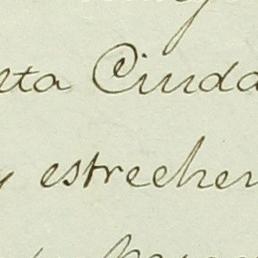 sta Ciuda
y estrechen